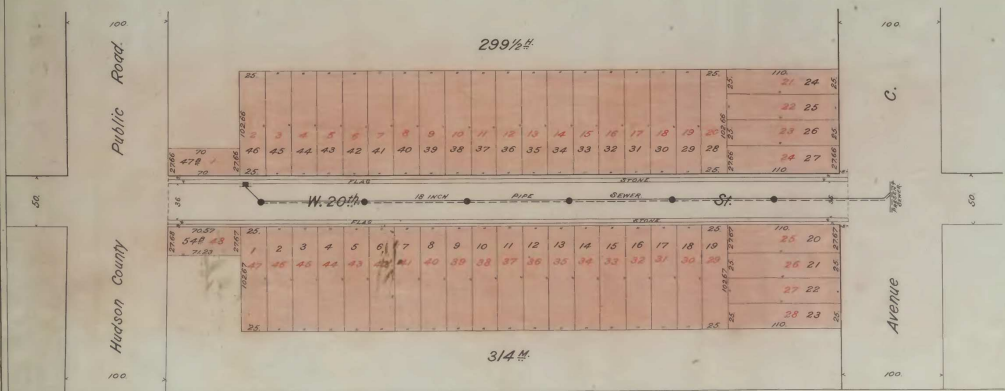 100. 100.
299½ H.
Public Road.
C.
25. 25. 110.
21 24
22 25
23 26
24 27
110.
102.66 102.66 27.66
2 3 4 5 6 7 8 9 10 11 12 13 14 15 16 17 18 19 20
46 45 44 43 42 41 40 39 38 37 36 35 34 33 32 31 30 29 28
25. 25.
70
47B 1
70
27.66 27.66
FLAG STONE
50. 36 W. 20th 18 INCH PIPE SEWER St. 50.
FLAG STONE
70.57
54B 48
71.23
27.68 27.67
1 2 3 4 5 6 7 8 9 10 11 12 13 14 15 16 17 18 19
47 46 45 44 43 42 41 40 39 38 37 36 35 34 33 32 31 30 29
102.67 102.67 27.67
110.
25 20
26 21
27 22
28 23
110.
25. 25.
Hudson County
Avenue
314 M.
100. 100.